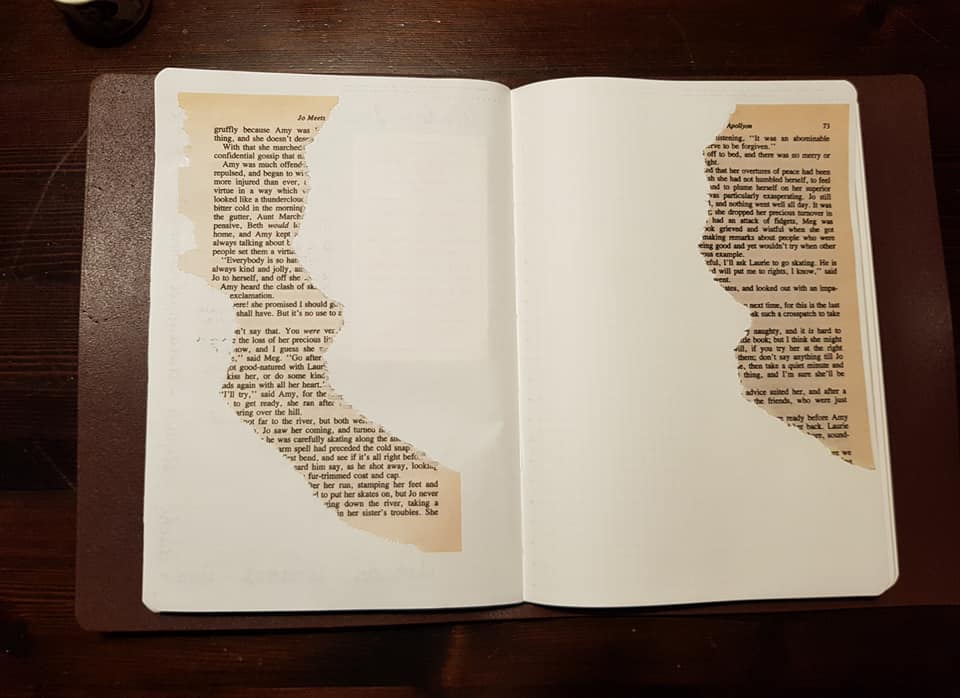 Jo Meets
gruffly because Amy was
thing, and she doesn't
With that she marched
confidential gossip that
Amy was much offend
repulsed, and began to
more injured than ever,
virtue in a way which
looked like a thundercloud
bitter cold in the morning
the gutter, Aunt March
pensive, Beth would
home, and Amy kept
always talking about
people set them a
"Everybody is so
always kind and jolly,
Jo to herself, and off she
Amy heard the clash of
exclamation.
ere! she promised I should
shall have. But it's no use to
n't say that. You were
the loss of her precious
ow, and I guess she
," said Meg. "Go after
ot good-natured with
kiss her, or do some
ads again with all her heart."
"I'll try," said Amy, for the
to get ready, she ran after
aring over the hill.
ot far to the river, but both
. Jo saw her coming, and turned
he was carefully skating along the
arm spell had preceded the cold snap
first bend, and see if it's all right
ard him say, as he shot away,
fur-trimmed coat and cap.
her run, stamping her feet and
to put her skates on, but Jo never
ging down the river, taking a
in her sister's troubles. She
Apollyon 73
listening, "It was an abominable
rve to be forgiven."
off to bed, and there was no merry or
ght.
ed that her overtures of peace had been
sh she had not humbled herself, to feel
and to plume herself on her superior
was particularly exasperating. Jo still
, and nothing went well all day. It was
she dropped her precious turnover in
had an attack of fidgets, Meg was
ook grieved and wistful when she got
making remarks about people who were
eing good and yet wouldn't try when other
ous example.
eful, I'll ask Laurie to go skating. He is
d will put me to rights, I know," said
went.
ates, and looked out with an impa-
next time, for this is the last
sk such a crosspatch to take
naughty, and it is hard to
le book; but I think she might
ill, if you try her at the right
them; don't say anything till Jo
e, then take a quiet minute and
thing, and I'm sure she'll be
advice suited her, and after a
the friends, who were just
ready before Amy
her back. Laurie
re, sound-
we